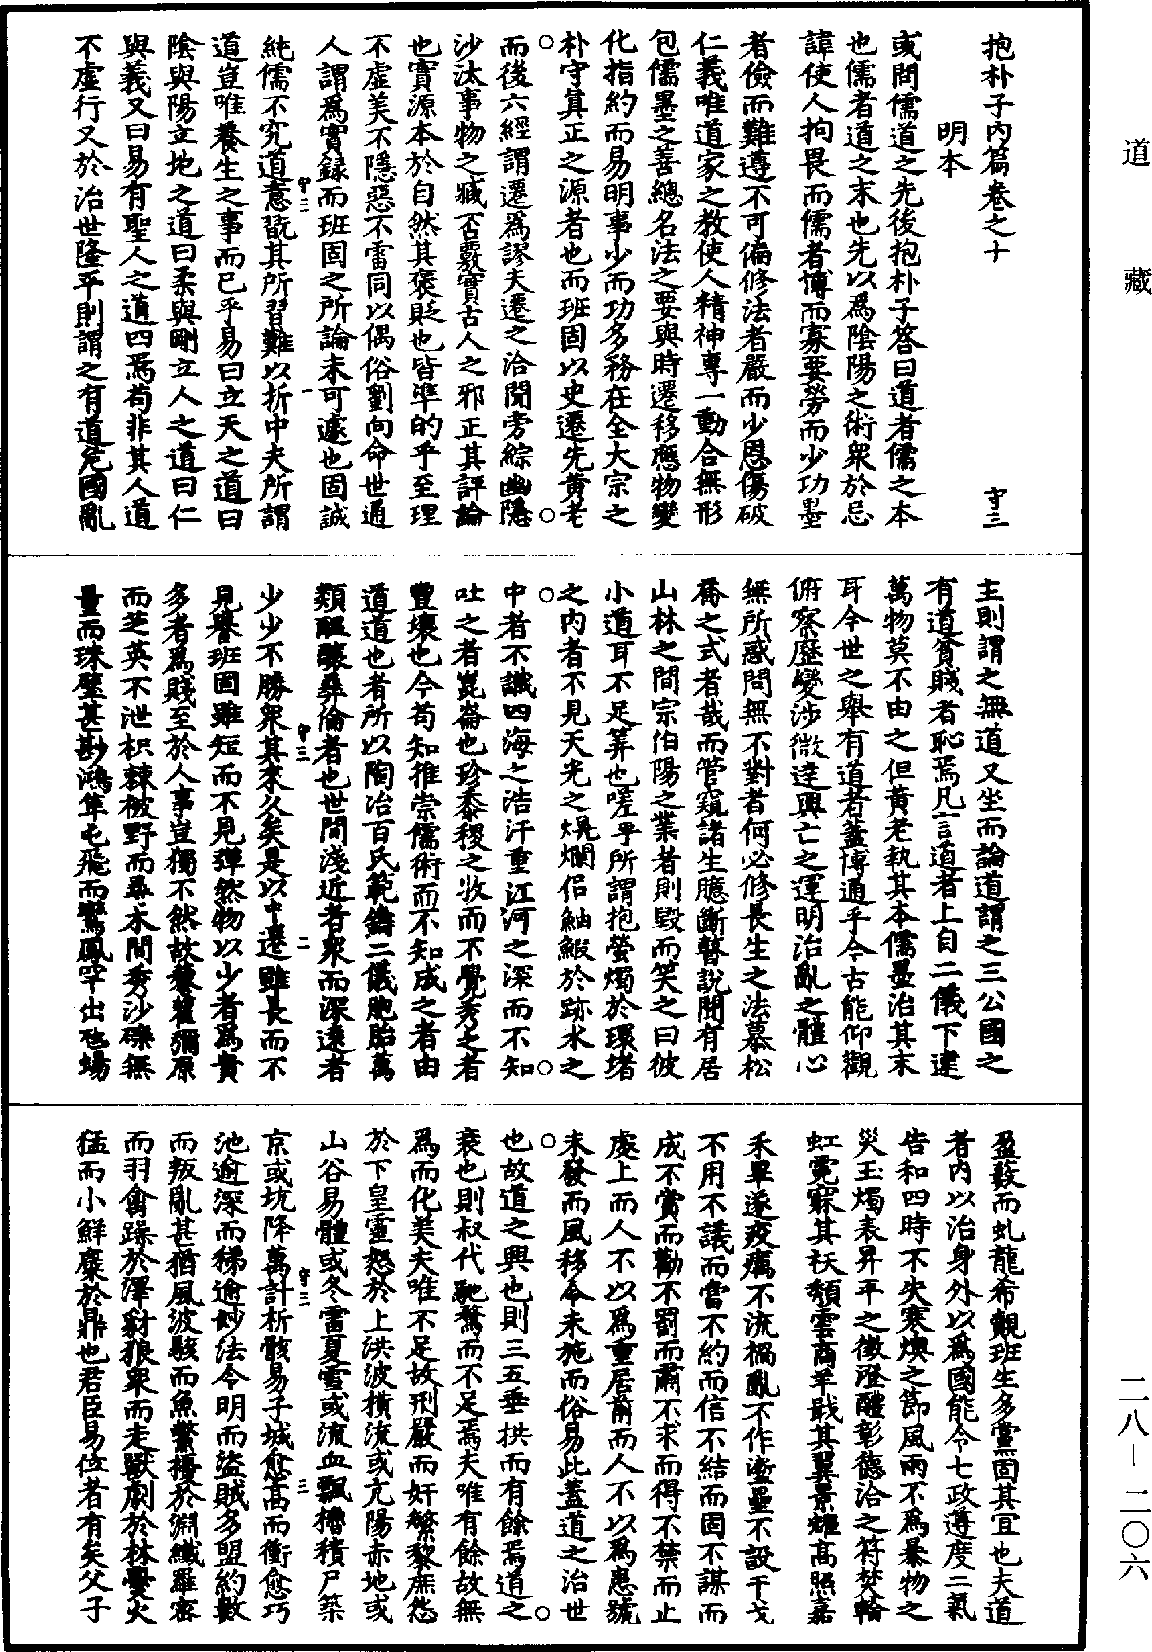 道藏
抱朴子內篇卷之十 守三
明本
或問儒道之先後抱朴子答曰道者儒之本
也儒者道之末也先以為陰陽之術衆於忌
諱使人拘畏而儒者博而寡要勞而少功墨
者儉而難遵不可偏修法者嚴而少恩傷破
仁義唯道家之教使人精神專一動合無形
包儒墨之善總名法之要與時遷移應物變
化指約而易明事少而功多務在全大宗之
朴守真正之源者也而班固以史遷先黃老
而後六經謂遷為謬夫遷之洽聞旁綜幽隱
沙汰事物之臧否覈實古人之邪正其評論
也實源本於自然其褒貶也皆準的乎至理
不虛美不隱惡不雷同以偶俗劉向命世通
人謂為實錄而班固之所論未可㩀也固誠
純儒不究道意翫其所習難以折中夫所謂
道豈唯養生之事而已乎易曰立天之道曰
陰與陽立地之道曰柔與剛立人之道曰仁
與義又曰易有聖人之道四焉苟非其人道
不虛行又於治世隆平則謂之有道危國亂
主則謂之無道又坐而論道謂之三公國之
有道貧賤者恥焉凡言道者上自二儀下逮
萬物莫不由之但黃老執其本儒墨治其末
耳今世之舉有道者蓋博通乎今古能仰觀
俯察歷變涉微達興亡之運明治亂之體心
無所惑問無不對者何必修長生之法慕松
喬之式者哉而管窺諸生臆斷瞽說聞有居
山林之間宗伯陽之業者則毀而笑之曰彼
小道耳不足筭也嗟乎所謂抱螢燭於環堵
之內者不見天光之焜爛侶鮋鰕於跡水之
中者不識四海之浩汗重江河之深而不知
吐之者崑崙也珍黍稷之收而不覺秀之者
豐壤也今苟知推崇儒術而不知成之者由
道道也者所以陶冶百氏範鑄二儀胞胎萬
類醞釀彝倫者也世間淺近者衆而深遠者
少少不勝衆其來久矣是以史遷雖長而不
見譽班固雖短而不見彈然物以少者為貴
多者為賤至於人事豈獨不然故藜藿彌原
而芝英不泄枳棘被野而尋木間秀沙礫無
量而珠璧甚尠鴻隼屯飛而鸞鳳罕出虺蜴
盈藪而虬龍希覯班生多黨固其宜也夫道
者內以治身外以為國能令七政遵度二氣
告和四時不失寒燠之節風雨不為暴物之
災玉燭表昇平之徵澄醴彰德洽之符焚輪
虹霓寢其祅頹雲商羊戢其翼景耀高照嘉
禾畢遂疫癘不流禍亂不作塹壘不設干戈
不用不議而當不約而信不結而固不謀而
成不賞而勸不罰而肅不求而得不禁而止
處上而人不以為重居前而人不以為患號
未發而風移令未施而俗易此蓋道之治世
也故道之興也則三五垂拱而有餘焉道之
衰也則叔代馳騖而不足焉夫唯有餘故無
為而化美夫唯不足故刑嚴而奸繁黎庶怨
於下皇靈怒於上洪波橫流或亢陽赤地或
山谷易體或冬雷夏雪或流血飄櫓積尸築
京或坑降萬計析骸易子城愈高而衝愈巧
池逾深而梯逾妙法令明而盜賊多盟約數
而叛亂甚猶風波駭而魚鱉擾於淵纖羅密
而羽禽躁於澤豺狼衆而走獸劇於林爨火
猛而小鮮糜於鼎也君臣易位者有矣父子
二八—二〇六